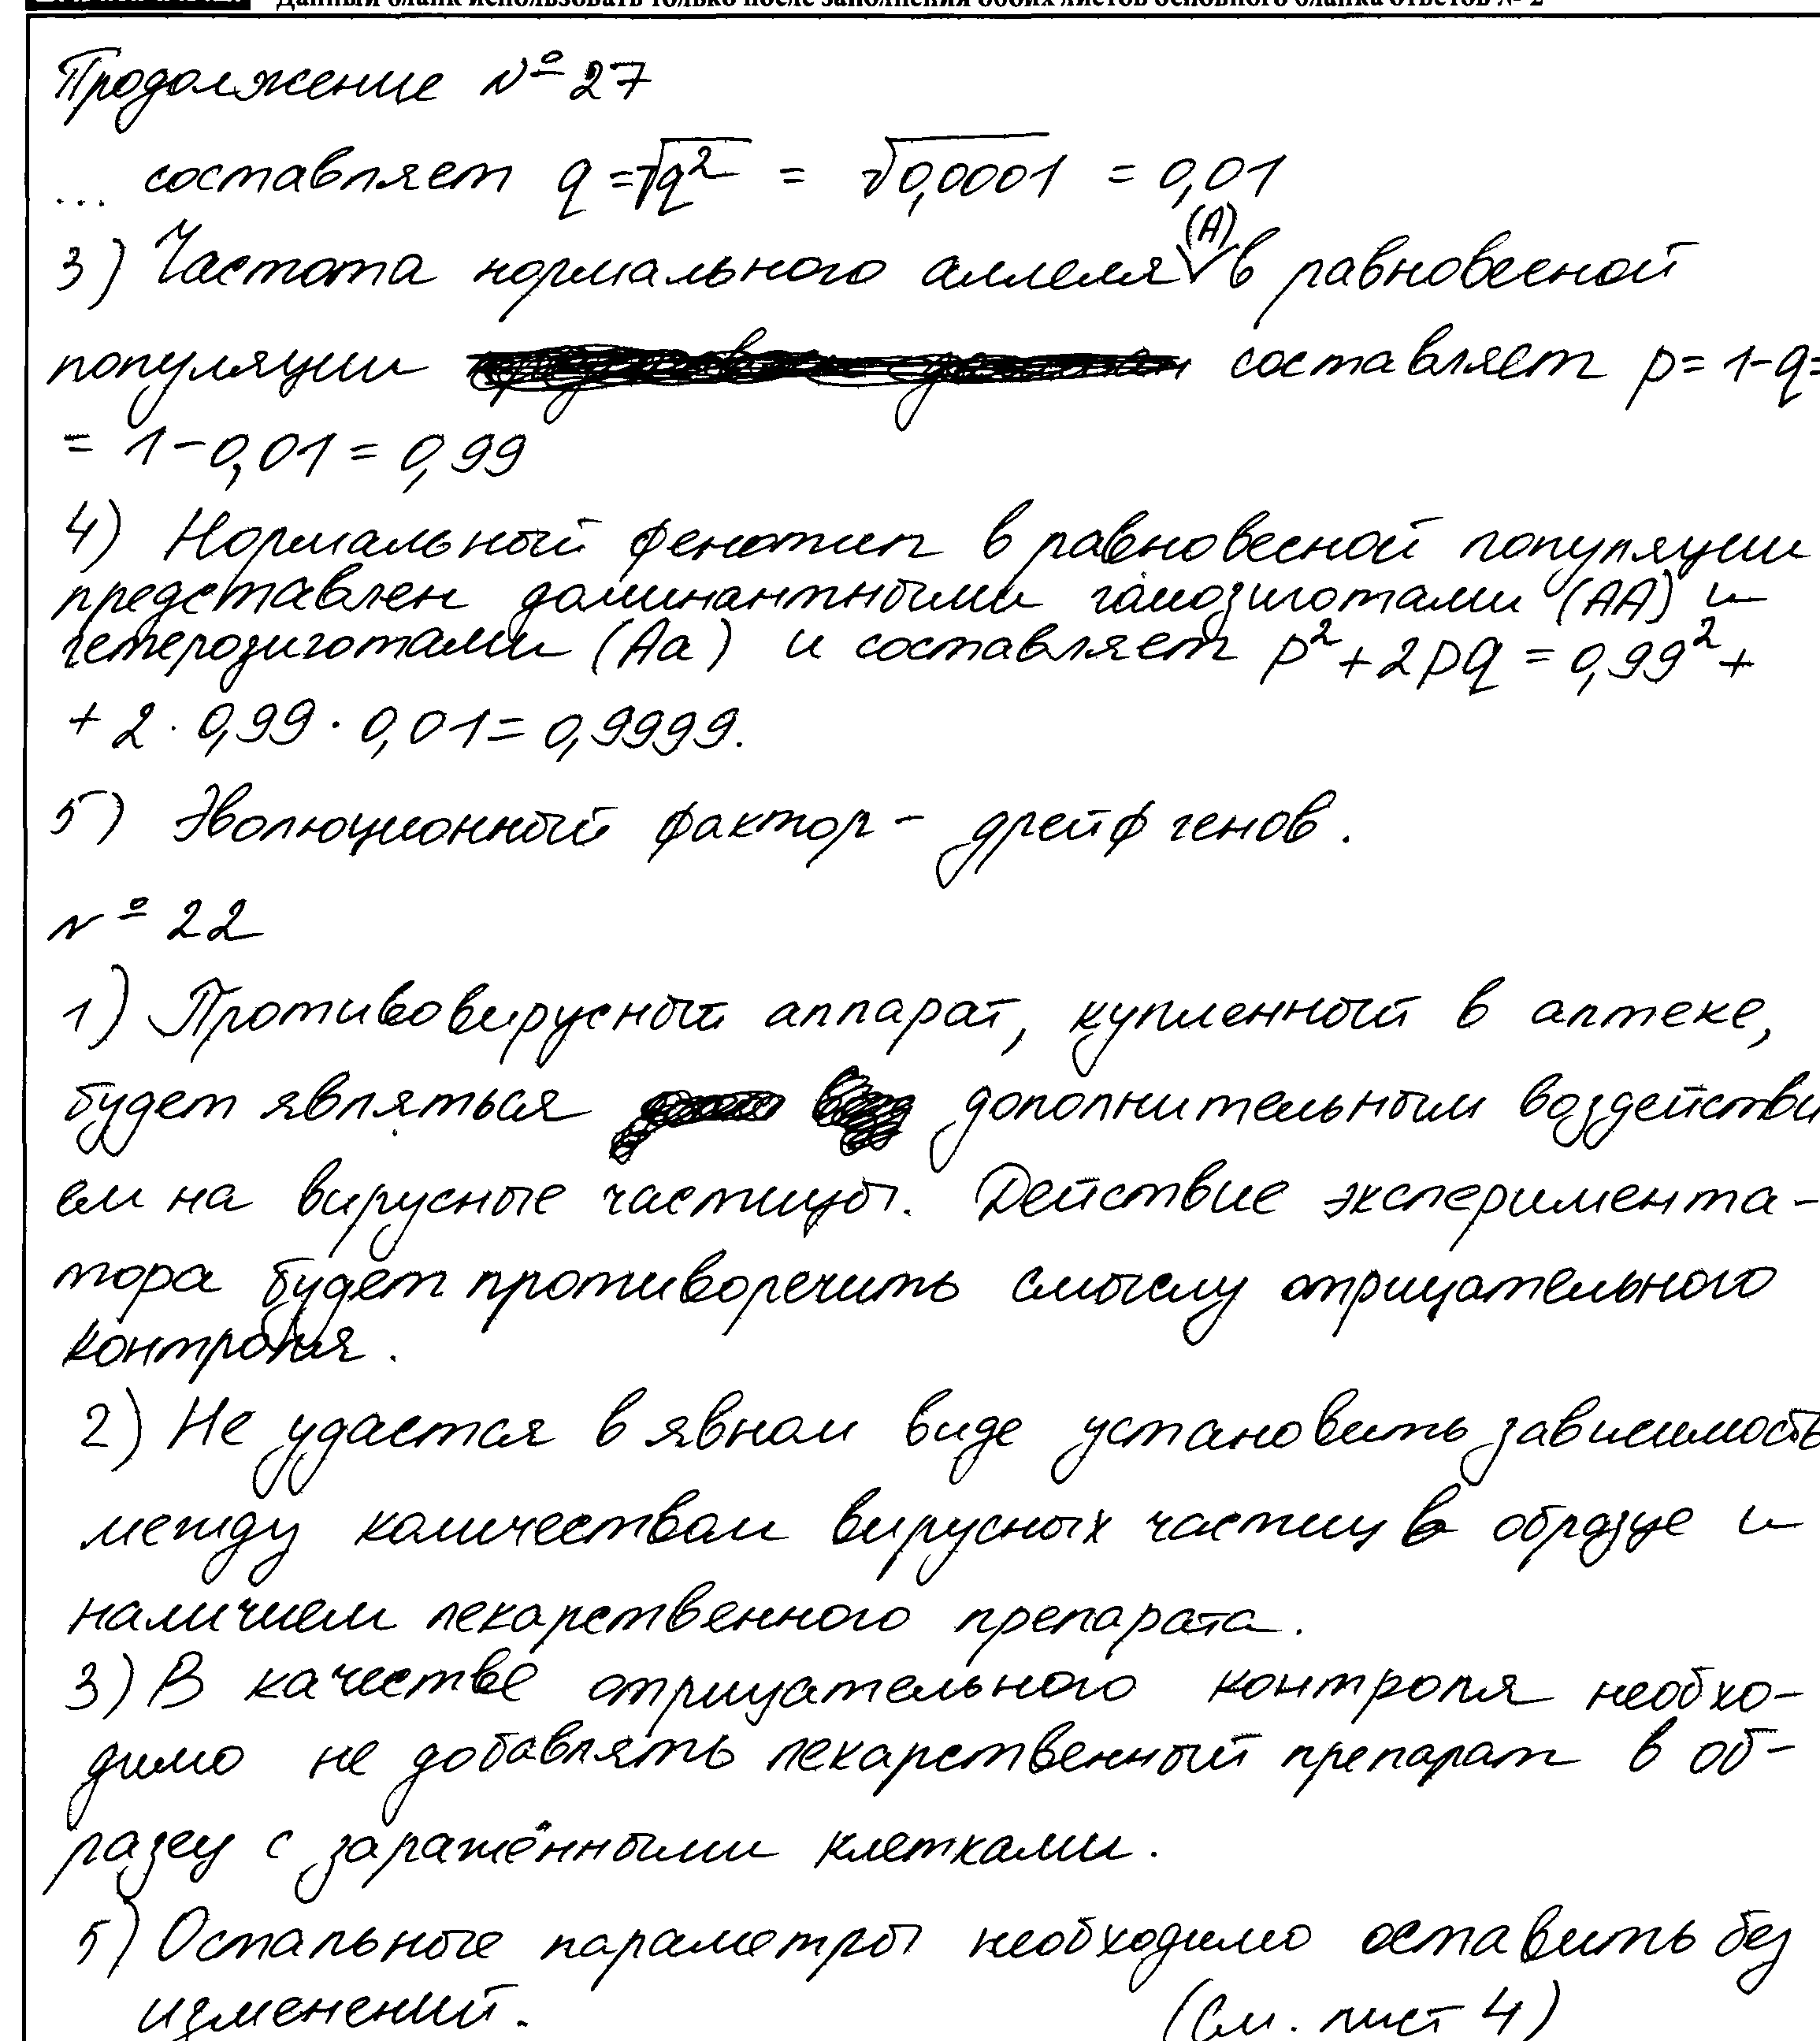 Данный бланк использовать только после заполнения обоих листов основного бланка ответов № 2
Продолжение № 27
... составляет q = √q² = √0,0001 = 0,01
3) Частота нормального аллеля (А) в равновесной
популяции составляет p = 1-q=
= 1-0,01 = 0,99
4) Нормальный фенотип в равновесной популяции
представлен доминантными гомозиготами (АА) и
гетерозиготами (Аа) и составляет p² + 2pq = 0,99² +
+ 2 · 0,99 · 0,01 = 0,9999.
5) Эволюционный фактор - дрейф генов.
№ 22
1) Противовирусный аппарат, купленный в аптеке,
будет являться дополнительным воздействи
ем на вирусные частицы. Действие эксперимента-
тора будет противоречить смыслу отрицательного
контроля.
2) Не удастся в явном виде установить зависимость
между количеством вирусных частиц в образце и
наличием лекарственного препарата.
3) В качестве отрицательного контроля необхо-
димо не добавлять лекарственный препарат в об-
разец с заражёнными клетками.
5) Остальные параметры необходимо оставить без
изменений. (См. лист 4)